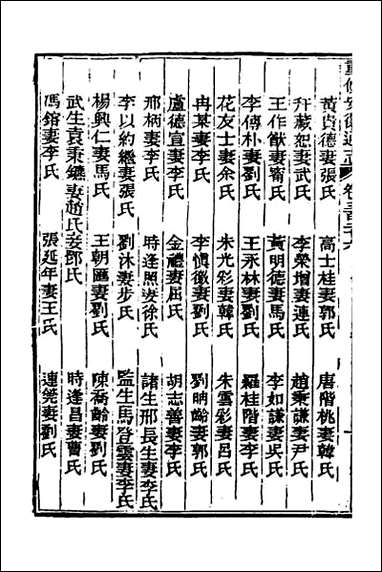 重修安徽通志 卷三百
黃貴德妻張氏 高士桂妻郭氏 唐階桃妻韓氏
許葳恕妻武氏 李榮增妻連氏 趙秉謙妻尹氏
王作猷妻甯氏 黃明德妻馬氏 李如謙妻吳氏
李傳朴妻劉氏 王永林妻劉氏 羅桂階妻李氏
花友士妻余氏 朱光彩妻韓氏 朱雲彩妻呂氏
冉某妻李氏 李慎徵妻劉氏 劉昞齡妻郭氏
盧德宣妻李氏 金禮妻屈氏 胡志善妻李氏
邢柄妻李氏 時逢照妻徐氏 諸生邢長生妻李氏
李以約繼妻張氏 劉沐妻步氏 監生馬登雲妻李氏
楊興仁妻馬氏 王朝匯妻劉氏 陳喬齡妻劉氏
武生袁秉鑑妻趙氏妾鄧氏 時逢昌妻曹氏
馮錧妻李氏 張延年妻王氏 連堯妻劉氏